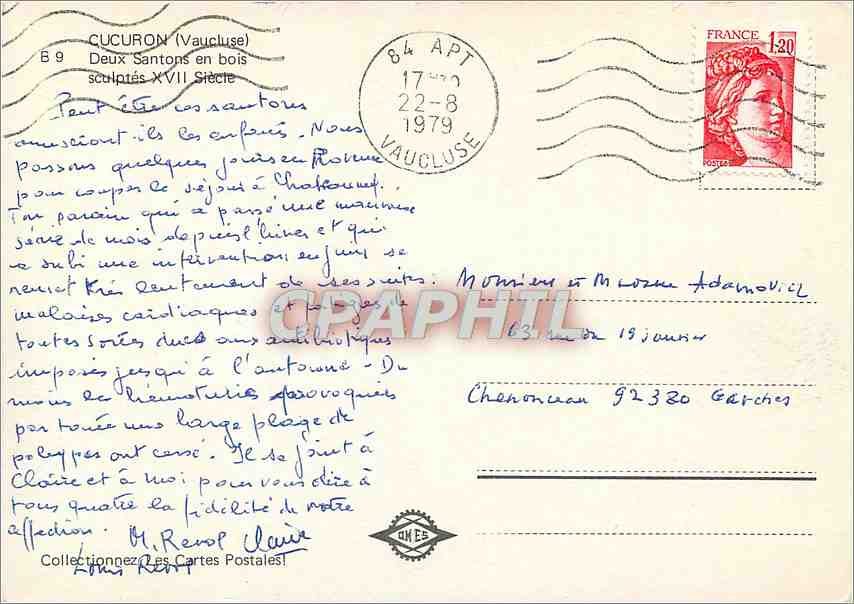 B 9
CUCURON (Vaucluse)
Deux Santons en bois
sculptés XVII Siècle
84 APT
17
22-8
1979
VAUCLUSE
FRANCE 1,20
POSTES
Peut être ces santons
amuseront-ils les enfants. Nous
passons quelques jours en Provence
pour couper le séjour à
Ton parain qui a passé une mauvaise
série de mois depuis l'hiver et qui
a subi une intervention en juin se
remet très lentement de ses suites:
malaises cardiaques et
toutes sortes dues aux antibiotiques
imposés jusqu'à l'automne - Du
moins les hématuries provoquées
par toute une large plage de
polypes ont cessé. Il se joint à
Claire et à moi pour vous dire à
tous quatre la fidélité de notre
affection. M. Revol Claire
Louis Revol
Collectionnez Les Cartes Postales!
OMES
Monsieur et Madame Adamovicz
63 rue du 19 janvier
Chenonceau 92380 Garches
CPAPHIL